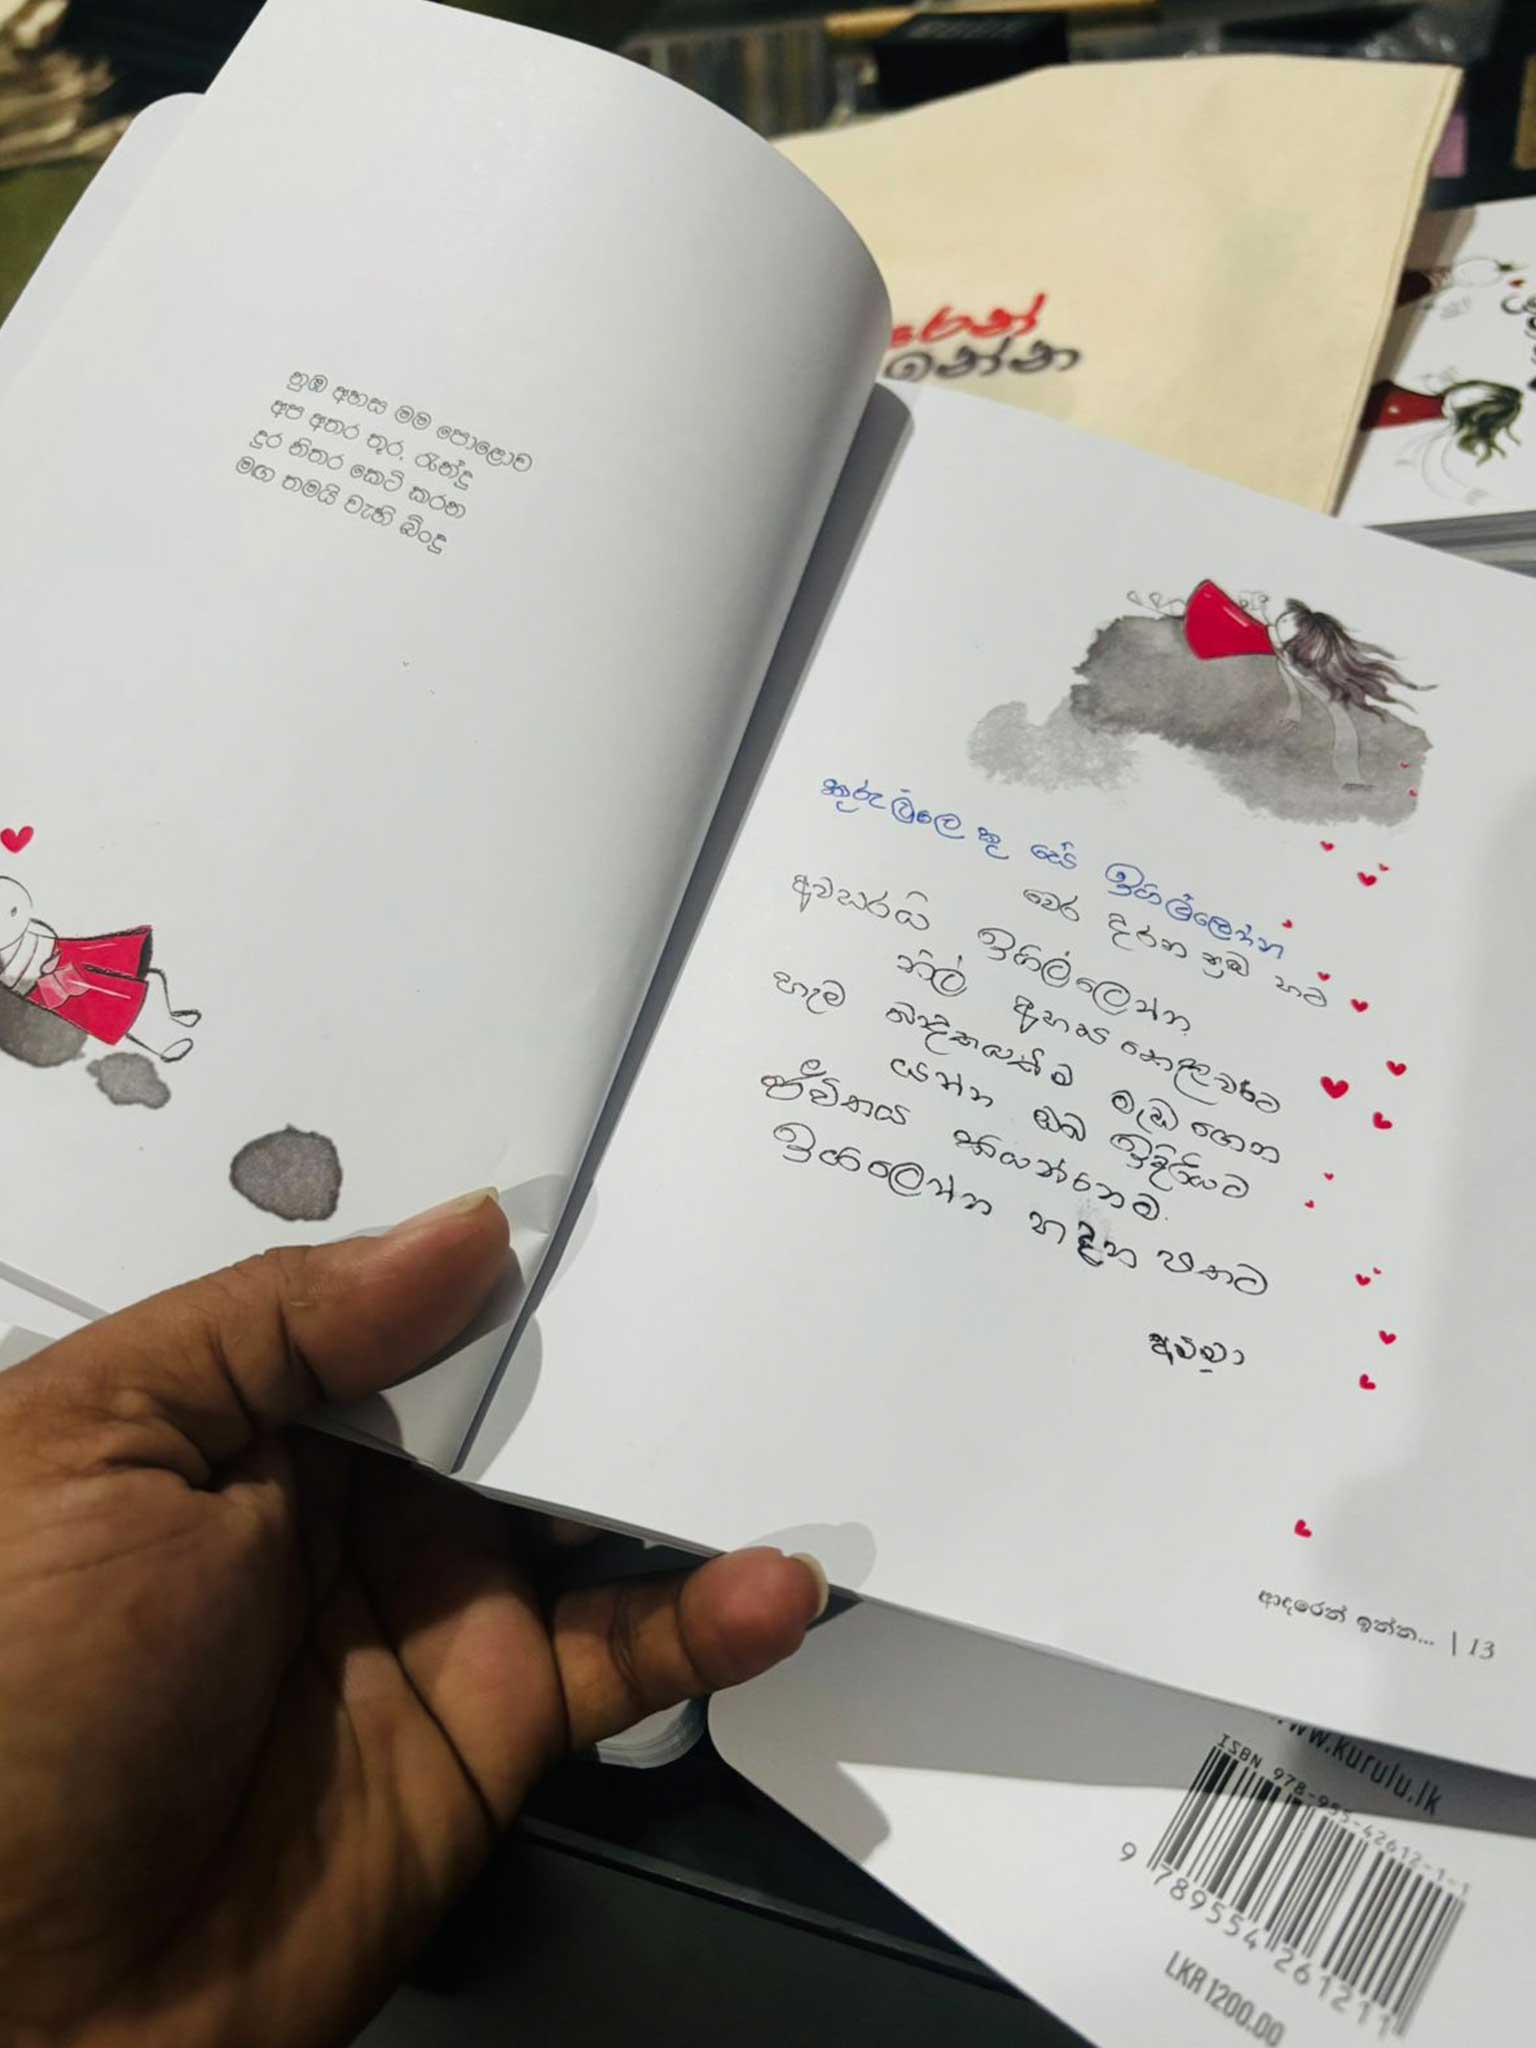 නුඹ අහස මම පොළොව
අප අතර තුර, රැන්දු
දුර නිතර කෙටි කරන
මඟ තමයි වැහි බිංදු
රෙන්
ඉන්න
කුරුල්ලෙකු සේ ඉගිල්ලෙන්න
වෙර දරන නුඹ හට
අවසරයි ඉගිල්ලෙන්න.
නිල් අහස කෙළවරට
හැම බාදකයක්ම මැඩගෙන
යන්න ඔබ ඉදිරියට
ජීවිතය ජයගන්නම
ඉගිලෙන්න හදන මකට
අම්මා
ආදරෙන් ඉන්න... | 13
www.kurulu.lk
ISBN 978-955-42612-1-1
9 789554 261211
LKR 1200.00